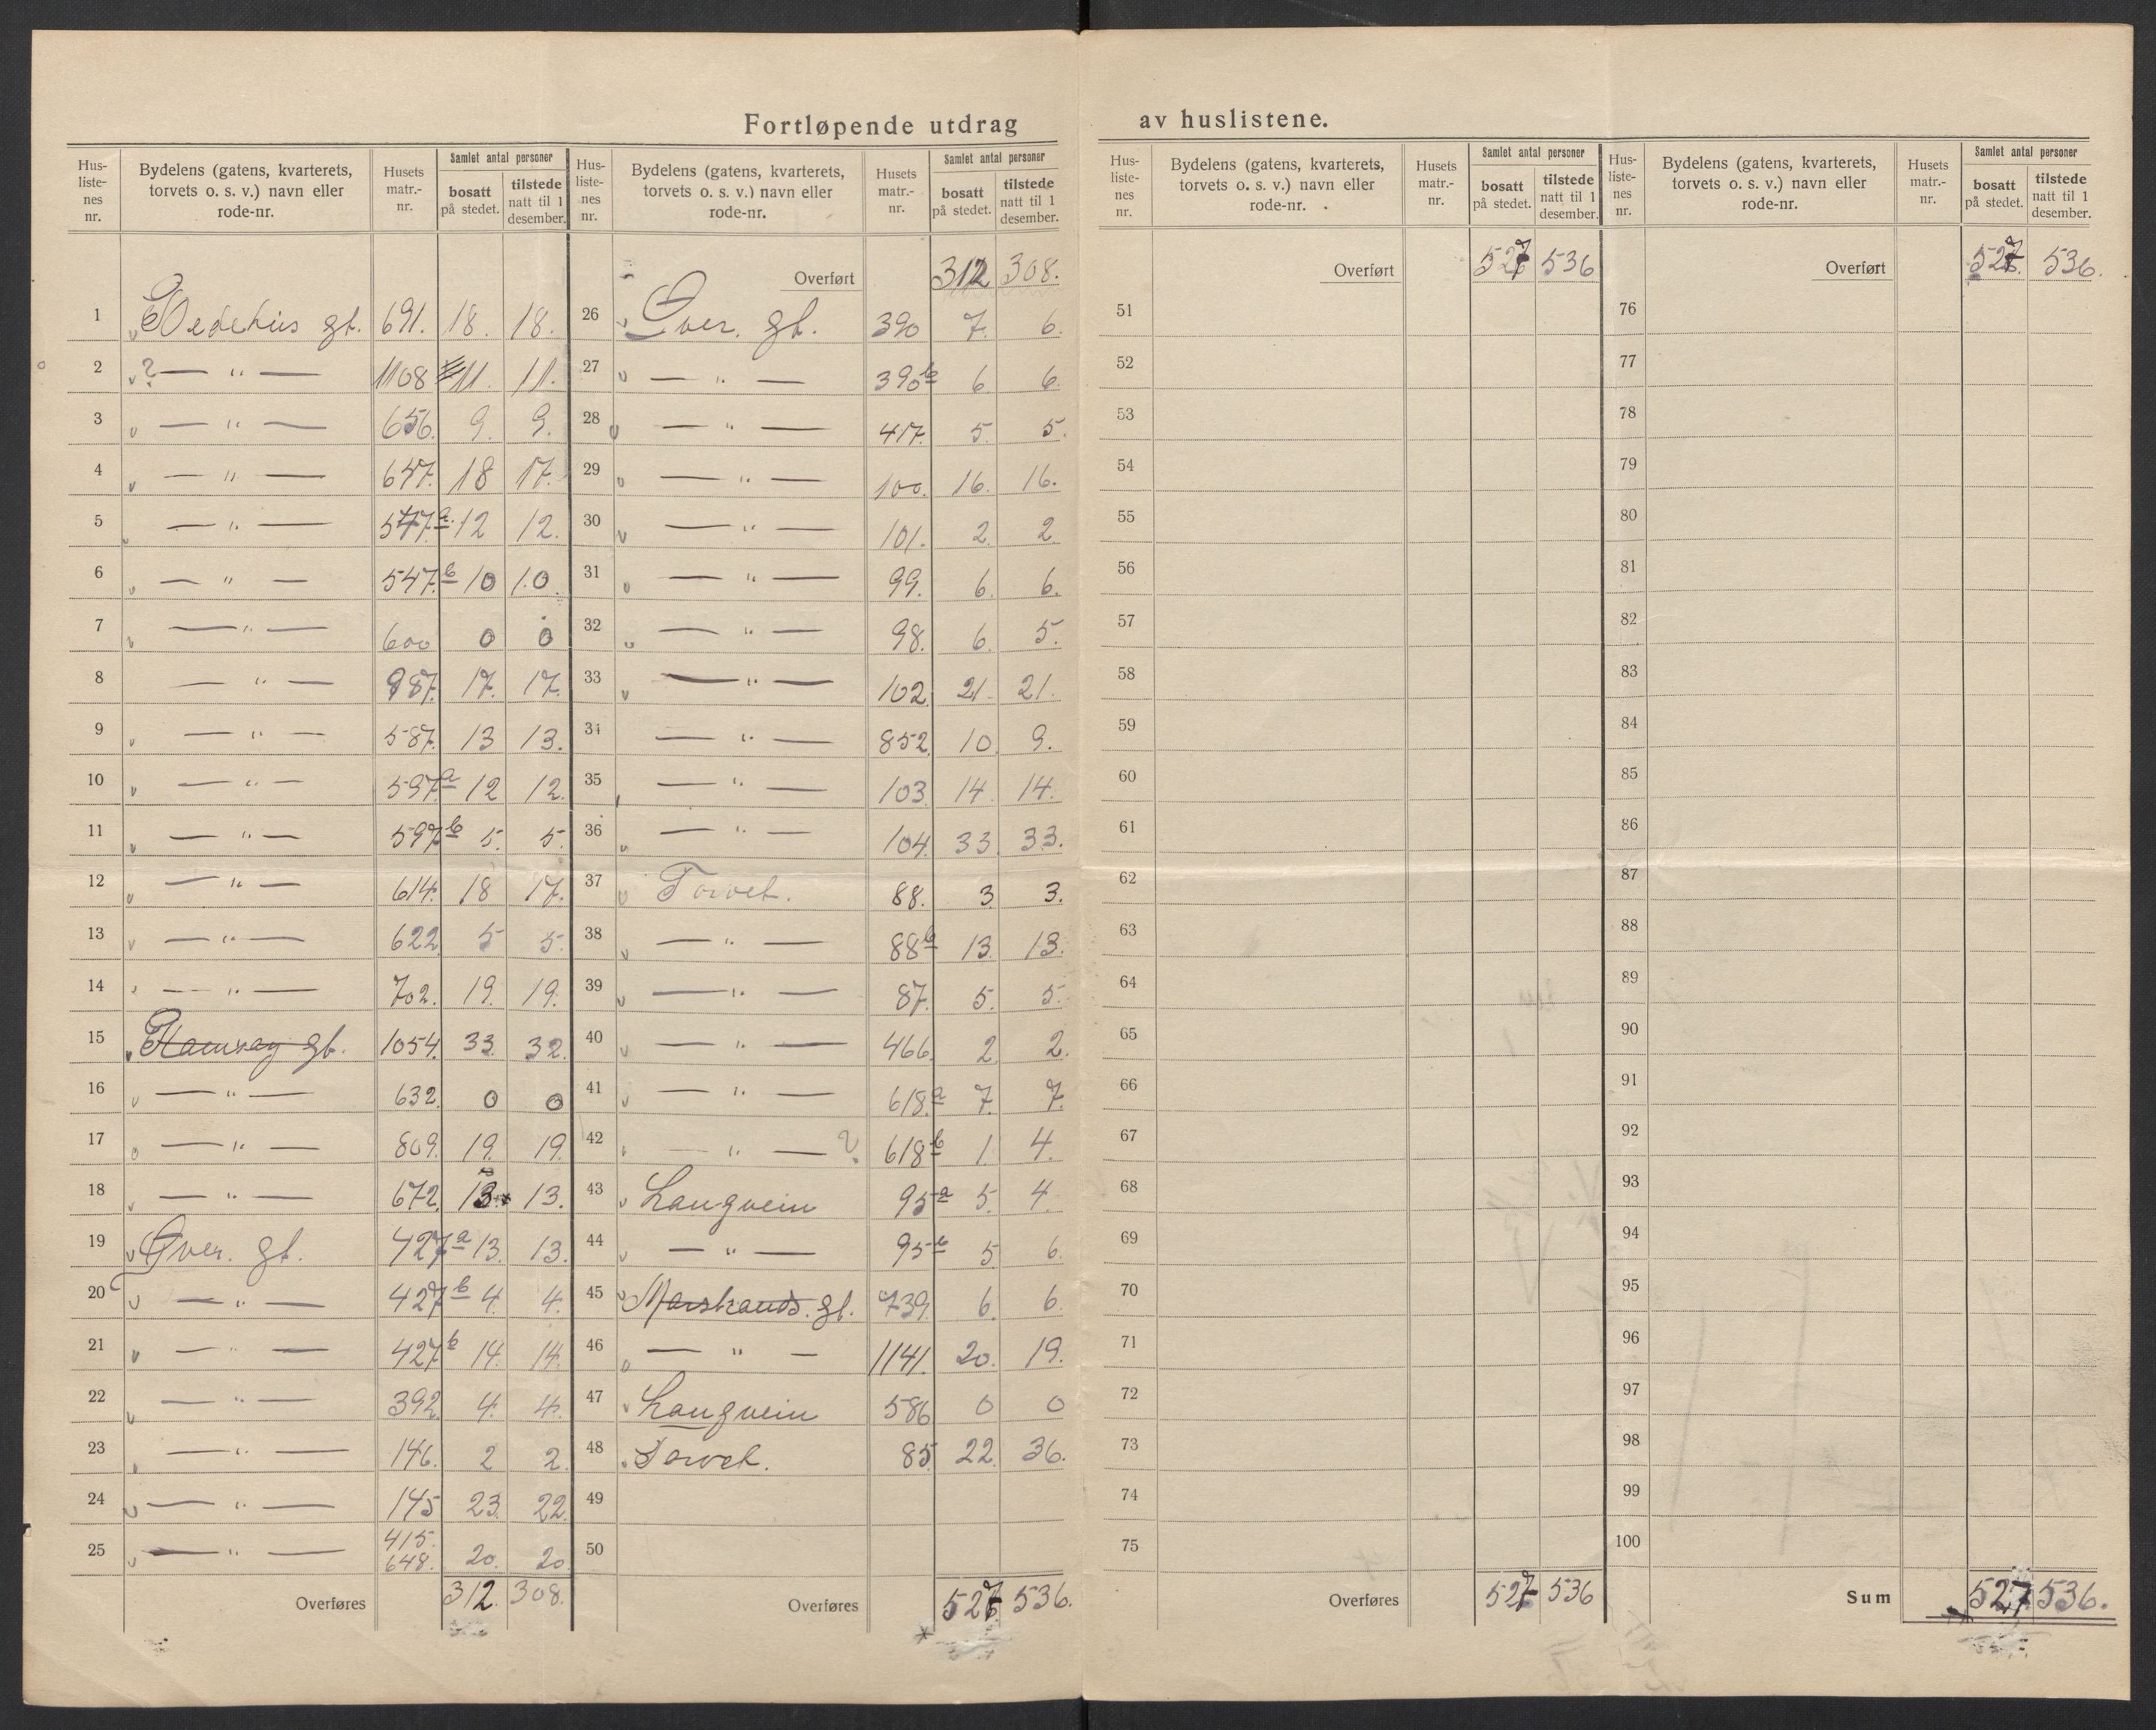 Fortløpende utdrag av huslistene.
Hus-
liste-
nes
nr.
Bydelens (gatens, kvarterets,
torvets o. s. v.) navn eller
rode-nr.
Husets
matr.-
nr.
Samlet antal personer
bosatt
på stedet.
tilstede
natt til 1
desember.
1 gt. 691. 18. 18.
2 ? — " — 1108 11. 11.
3 — " — 656. 9. 9.
4 — " — 647. 18 17.
5 — " — 547.a. 12 12.
6 — " — 547.b 10 10.
7 — " — 600 0 0
8 — " — 987. 17. 17.
9 — " — 587. 13 13.
10 — " — 597a 12 12.
11 — " — 597b 5. 5.
12 — " — 614. 18 17.
13 — " — 622 5 5.
14 — " — 702. 19. 19.
15 Ramsay gt. 1054. 33. 32.
16 — " — 632. 0 0
17 — " — 809. 19. 19.
18 — " — 672. 13. 13.
19 Øver. gt. 427a 13. 13.
20 — " — 427b 4. 4.
21 — " — 427b 14. 14.
22 — " — 392. 4. 4.
23 — " — 146. 2 2.
24 — " — 145 23. 22.
25 — " — 415. 648. 20. 20
Overføres 312. 308.
Hus-
liste-
nes
nr.
Bydelens (gatens, kvarterets,
torvets o. s. v.) navn eller
rode-nr.
Husets
matr.-
nr.
Samlet antal personer
bosatt
på stedet.
tilstede
natt til 1
desember.
Overført 312 308.
26 Øver. gt. 390 7. 6.
27 — " — 390b 6 6.
28 — " — 417. 5. 5.
29 — " — 100. 16. 16.
30 — " — 101. 2. 2.
31 — " — 99. 6. 6.
32 — " — 98. 6. 5.
33 — " — 102. 21. 21.
34 — " — 852. 10. 9.
35 — " — 103. 14. 14.
36 — " — 104. 33. 33.
37 Torvet. 88. 3. 3.
38 — " — 88b 13. 13.
39 — " — 87. 5. 5.
40 — " — 466. 2. 2.
41 — " — 618.a 7. 7.
42 — " — ? 618b 1. 4.
43 Langveien 95a 5. 4.
44 — " — 95b 5. 6.
45 Marstrands. gt. 739. 6. 6.
46 — " — 1141. 20. 19.
47 Langveien 586 0 0
48 Torvet. 85. 22. 36.
49
50
Overføres 527. 536.
Hus-
liste-
nes
nr.
Bydelens (gatens, kvarterets,
torvets o. s. v.) navn eller
rode-nr.
Husets
matr.-
nr.
Samlet antal personer
bosatt
på stedet.
tilstede
natt til 1
desember.
Overført 527 536
51
52
53
54
55
56
57
58
59
60
61
62
63
64
65
66
67
68
69
70
71
72
73
74
75
Overføres 527 536
Hus-
liste-
nes
nr.
Bydelens (gatens, kvarterets,
torvets o. s. v.) navn eller
rode-nr.
Husets
matr.-
nr.
Samlet antal personer
bosatt
på stedet.
tilstede
natt til 1
desember.
Overført 527. 536.
76
77
78
79
80
81
82
83
84
85
86
87
88
89
90
91
92
93
94
95
96
97
98
99
100
Sum 527 536.